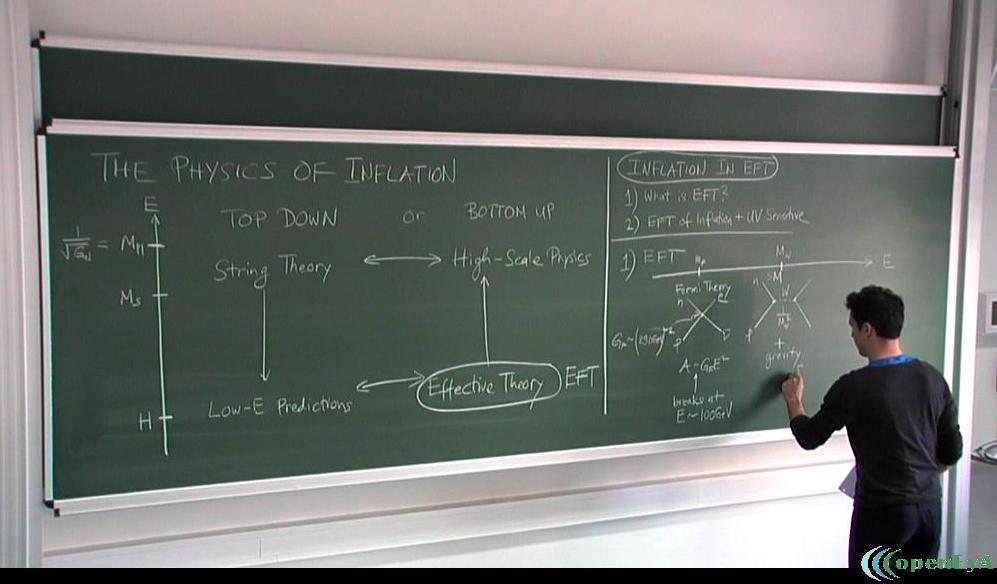 THE PHYSICS OF INFLATION
E
TOP DOWN or BOTTOM UP
1/√G_N = M_Pl
String Theory ⟷ High-Scale Physics
M_S
Low-E Predictions ⟷ Effective Theory EFT
H
INFLATION IN EFT
1) What is EFT?
2) EFT of Inflation + UV Sensitive
1) EFT
M_W
E
Fermi Theory
SM
n
n
W
p
p
A ~ G_F E²
breaks at
E ~ 100 GeV
+
gravity
openEyA